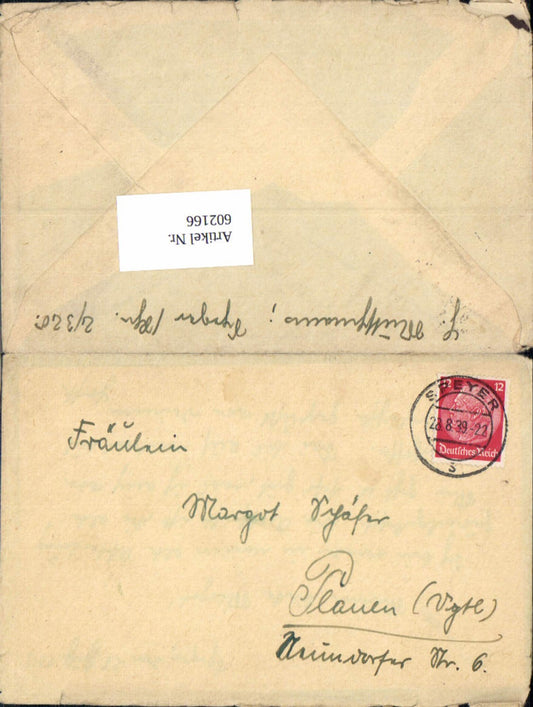 Artikel Nr.
602166
Speyer
SPEYER
12 12
28.8.39.-22
Deutsches Reich
s
Fräulein
Margot Schäfer
Plauen (Vgtl)
Neundorfer Str. 6.